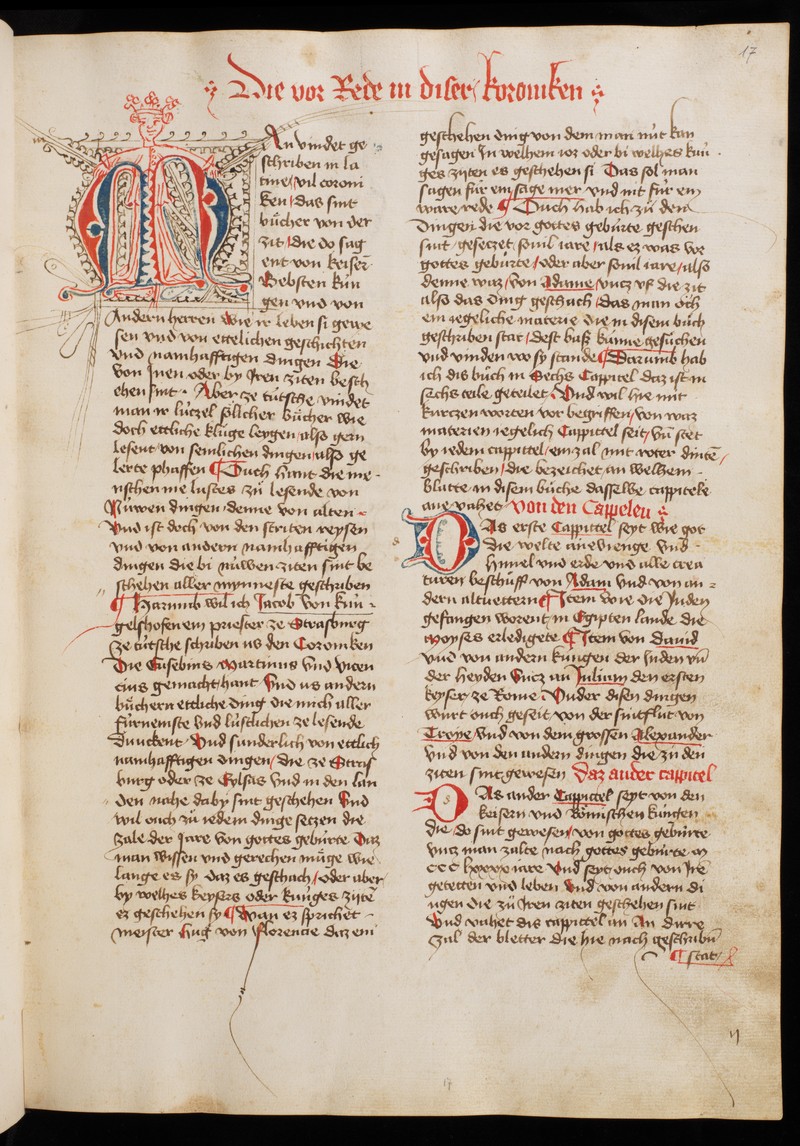 17
Die vor Rede in diser koroniken
Man vindet ge
schriben in la
tine / vil coroni
ken / das sint
buͤcher von der
zit / die do sag
ent von keiser
Bebsten kuͤn
gen vnd von
Andern herren wie ir leben si gewe
sen vnd von ettelichen geschichten
vnd namhafftigen dingen Die
von Inen oder by Iren ziten besch
ehen sint · Aber ze tuͤtsche vindet
man ir luͤczel soͤlicher buͤcher wie
doch ettliche kluͤge leygen / also gern
lesent / von semlichen dingen / also ge
lerte phaffen ¶ Ouch hant die me
nschen me lustes zuͦ lesende von
Nuͤwen dingen / denne von alten
Vnd ist doch von den striten reysen
vnd von andern namhafftigen
dingen die bi nuͤwen ziten sint be
schehen aller mynneste geschriben
¶ Harumb wil ich Jacob von kuͤn
gelshofen ein priester ze Strasburg
ze tuͤtsche schriben us den Coroniken
Die Eusebius Martinus vnd vicen
cius gemacht hant Vnd us andern
buͤchern ettliche ding die mich aller
fuͤrnemste vnd luͤstlichen ze lesende
dunckent · Vnd sunderlich von ettlich
namhafftigen dingen / die ze Stras
burg oder ze Eylsas vnd in den lan
den nahe da by sint geschehen Vnd
wil ouch zuͦ iedem dinge seczen die
zale der Jare von gottes gebuͤrte Daz
man wissen vnd gerechen muͤge wie
lange es sy daz es geschach / oder aber
by welhes keysers oder kuͤnges zijte
ez geschehen sy ¶ Wan ez sprichet
meister hug von florencie daz ein
geschehen ding von dem man nuͤt kan
gesagen In welhem ior oder bi welhes kuͤn
ges ziten es geschehen si Das sol man
sagen fuͤr ein sage mer vnd nit fuͤr ein
ware rede ¶ Ouch hab ich zuͦ den
dingen die vor gottes gebuͤrte geschen
sint / geseczet / so vil iare / als ez was vor
gottes gebuͤrte / oder aber so vil iare / also
denne waz / von Adame / vncz vf die zit
also das ding geschach / Das man och
ein iegeliche materie die in disem buͦch
geschriben stat / dest baß kuͤnne gesuͦchen
vnd vinden wo sy stande ¶ Darumb hab
ich dis buͦch in Sechs Cappitel daz ist in
sechs teile geteilet · Vnd wil hie mit
kurczen worten vor begriffen / von waz
materien iegelich Cappittel seit / vn̄ stet
by iedem cappittel / ein zal mit roter dinte
geschriben / die bezeichet an welhem
blatte in disem buͦche dasselbe cappitele
ane vahet · von den Cappelen
DAs erste Cappittel seyt wie got
die welte ane vienge vnd
himel vnd erde vnd alle crea
turen beschuͦff von Adam vnd von an
dern altuettern ¶ Item wie die Juden
gefangen worent in Egipten lande die
Moyses erledigete ¶ Item von dauid
vnd von andern kuͤngen der Juden vn̄
der heyden vncz an Julium den ersten
keyser ze Rome Vnder disen dingen
wurt ouch geseit von der sintfluͦt von
Troye / vnd von dem grossen Alexander
vnd von den andern dingen die zuͦ den
ziten sint gewesen Daz ander cappitel
DAs ander Cappittel seyt von den
keisern vnd Roͤmischen kuͤngen
die / do sint gewesen / von gottes gebuͤrte
vncz man zalte nach gottes gebuͤrte
iare Vnd seyt ouch von Jre
getetten vnd leben Vnd von andern di
ngen die zuͦ Iren ziten geschehen sint
Vnd vahet dis cappittel an An dirre
zal der bletter die hie nach geschribn̄
¶ stat /
17